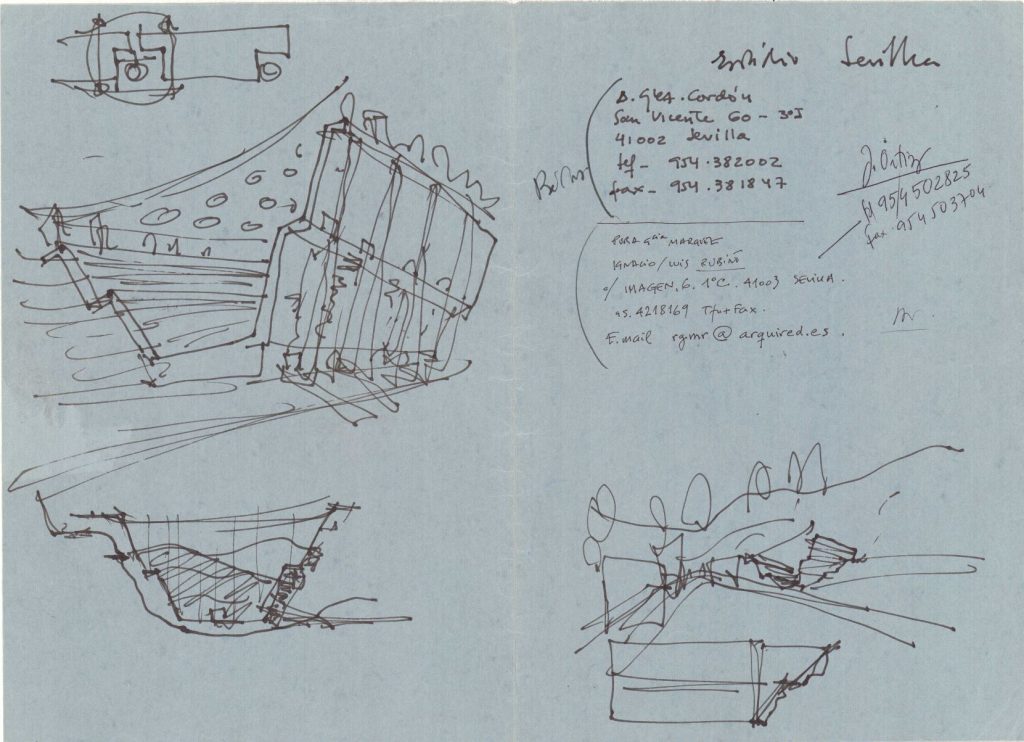 Estúdio Sevilla
A. Gª. Cordón
San Vicente 60 - 3º I
41002 Sevilla
tef - 954.382002
fax - 954.381847
J. Ortiz
tf 95/4 502825
fax. 954 503704
PURA Gcia MARQUEZ
IGNACIO/LUIS RUBIÑO
c/ IMAGEN, 6. 1ºC. 41003 SEVILLA.
95. 4218169 Tfn+Fax.
E.mail rgmr@arquired.es.